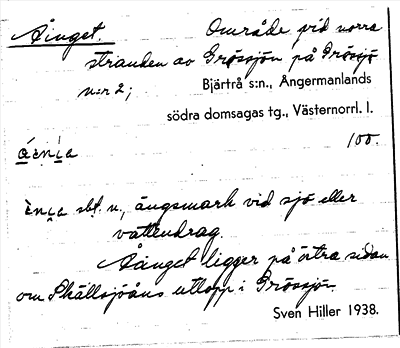 Ånget. Område vid norra
stranden av Grössjön på Grössjö
n:r 2;
Bjärtrå s:n., Ångermanlands
södra domsagas tg., Västernorrl. l.
100.
sbt. n., ängsmark vid sjö eller
vattendrag.
Ånget ligger på östra sidan
om Skällsjöåns utlopp i Grössjön.
Sven Hiller 1938.